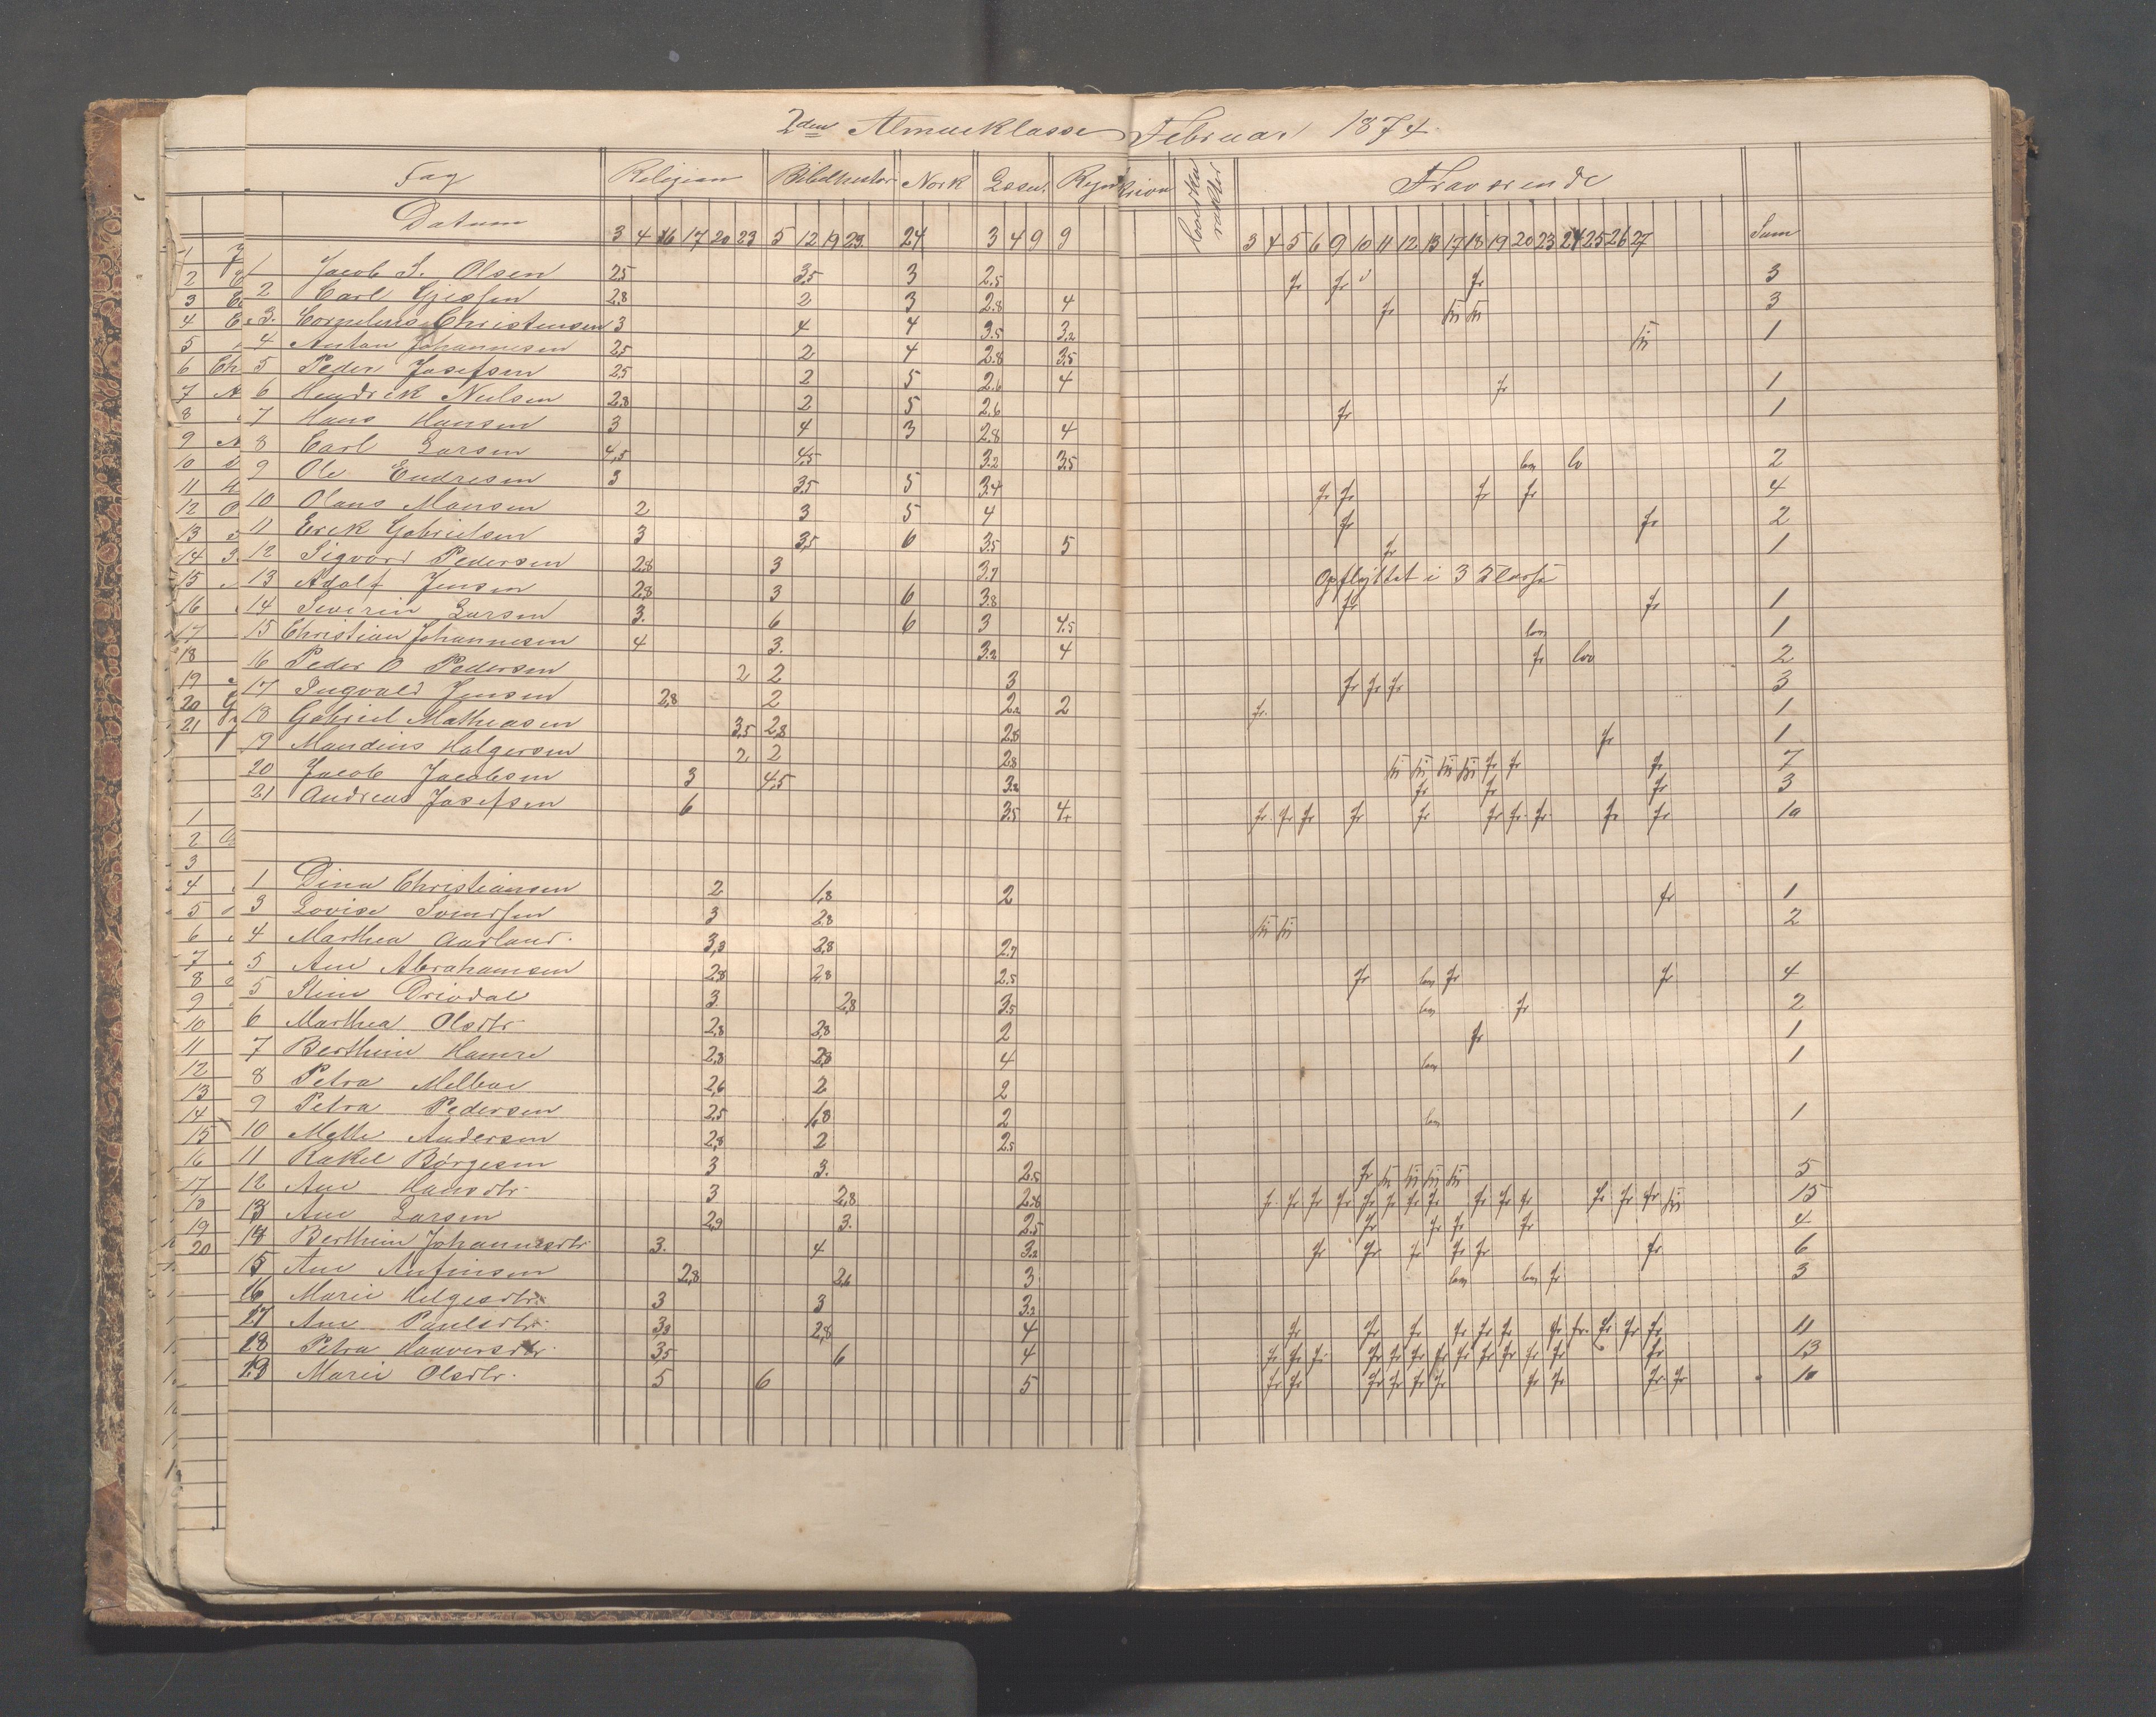 2den Almueklasse Februar 1874.
Fag Religion Bibelhistor Norsk Læsn. Regn Skrivn Hovedka rakter Fraværende
Datum 3 4 16 17 20 23 5 12 19 23 24 3 4 9 9 3 4 5 6 9 10 11 12 13 17 18 19 20 23 24 25 26 27 Sum
1 Jacob S. Olsen 2,5 3,5 3 2.5 fr fr fr 3
2 Carl Gjessen 2,8 2 3 2.8 4 fr 3
3. Cornelius Christensen 3 4 4 3.5 3.2 1
4 Anton Johannesen 2,5 2 4 2.8 3.5
5 Peder Josefsen 2,5 2 5 2.6 4 fr 1
6 Hendrik Nielsen 2,8 2 5 2.6 fr 1
7 Hans Hansen 3 4 3 2.8 4
8 Carl Larsen 4,5 4,5 3.2 3.5 2
9 Ole Endresen 3 3,5 5 3.4 fr fr fr fr 4
10 Olaus Monsen 2 3 5 4 fr fr 2
11 Erik Gabrielsen 3 3,5 6 3.5 5 fr 1
12 Sigvard Pedersen 2,8 3 3.7 Opflyttet i 3 Klasse
13 Adolf Jensen 2,8 3 6 3.8 fr fr 1
14 Severin Larsen 3. 6 6 3 4.5 1
15 Christian Johannesen 4 3. 3.2 4 fr 2
16 Peder O Pedersen 2 2 3 fr fr fr 3
17 Ingvald Jensen 2,8 2 2.2 2 fr. 1
18 Gabriel Mathiasen 3,5 2,8 2.8 fr 1
19 Mandius Holgersen 2 2 2.8 fr fr fr 7
20 Jacob Jacobsen 3 4,5 3.2 fr fr fr 3
21 Andreas Josefsen 6 3.5 4 fr. fr fr fr fr fr fr fr fr fr 10
1 Dina Christiansen 2 1,8 2 fr 1
3 Lovise Svendsen 3 2,8 2
4 Marthea Aarland. 3,3 2,8 2.7
5 Ane Abrahamsen 2,8 2,8 2.5 fr fr fr 4
5 Stine Drivdal 3 2,8 3.5 fr 2
6 Marthea Olsdtr 2,8 2,8 2 fr 1
7 Berthine Hamre 2,8 2,8 4 1
8 Petra Melbae 2,6 2 2
9 Petra Pedersen 2,5 1,8 2 1
10 Mette Andersen 2,8 2 2.5
11 Rakel Børgesen 3 3. 2.5 fr 5
12 Ane Hansdtr 3 2,8 2.8 fr fr fr fr fr fr fr fr fr fr fr fr fr fr 15
13 Ane Larsen 2,9 3. 2.5 fr fr fr fr 4
14 Berthine Johannesdtr 3. 4 3.2 fr fr fr fr fr fr 6
15 Ane Anfinsen 2,8 2,6 3 fr 3
16 Marie Helgesdtr 3 3 3.2
17 Ane Paulsdtr 3,3 2,8 4 fr fr fr fr fr fr fr fr fr fr fr 11
18 Petra Haaversdtr. 3,5 6 4 fr fr fr fr fr fr fr fr fr fr fr fr fr 13
19 Marie Olsdtr. 5 6 5 fr fr fr fr fr fr fr fr fr fr 10